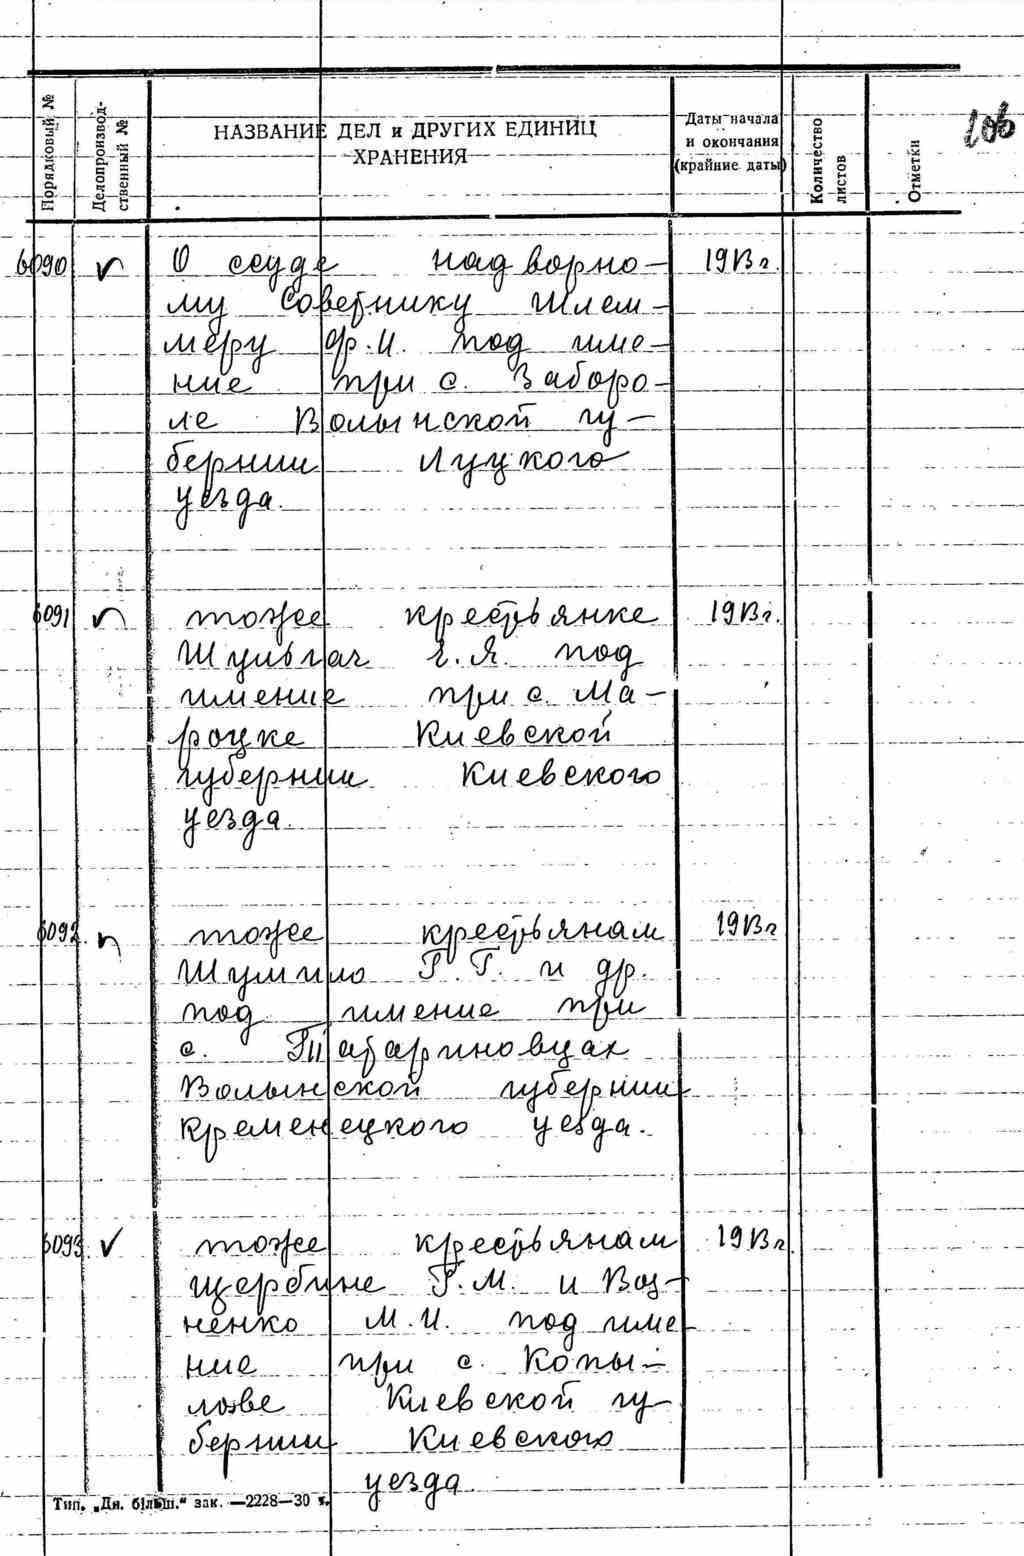 Порядковый №
Делопроизвод-
ственный №
НАЗВАНИЕ ДЕЛ и ДРУГИХ ЕДИНИЦ
ХРАНЕНИЯ
Даты начала
и окончания
(крайние даты)
Количество
листов
Отметки
6090 О ссуде надворно- 1913 г.
му советнику Шлем-
меру Ф.И. под име-
ние при с. Заборо-
ле Волынской гу-
бернии Луцкого
уезда.
6091 тоже крестьянке 1913 г.
Шульгач Я. под
имение при с. Ма-
роцке Киевской
губернии Киевского
уезда.
6092 тоже крестьянам 1913 г.
Шумило Г.Г. и др.
под имение при
с. Татариновцах
Волынской губернии
Кременецкого уезда.
6093 тоже крестьянам 1913 г.
Щербине Г.М. и
ненко М.И. под име
ние при с. Копы-
лове Киевской гу-
бернии Киевского
уезда.
Тип. „Дн. більш." зак. —2228—30 т.